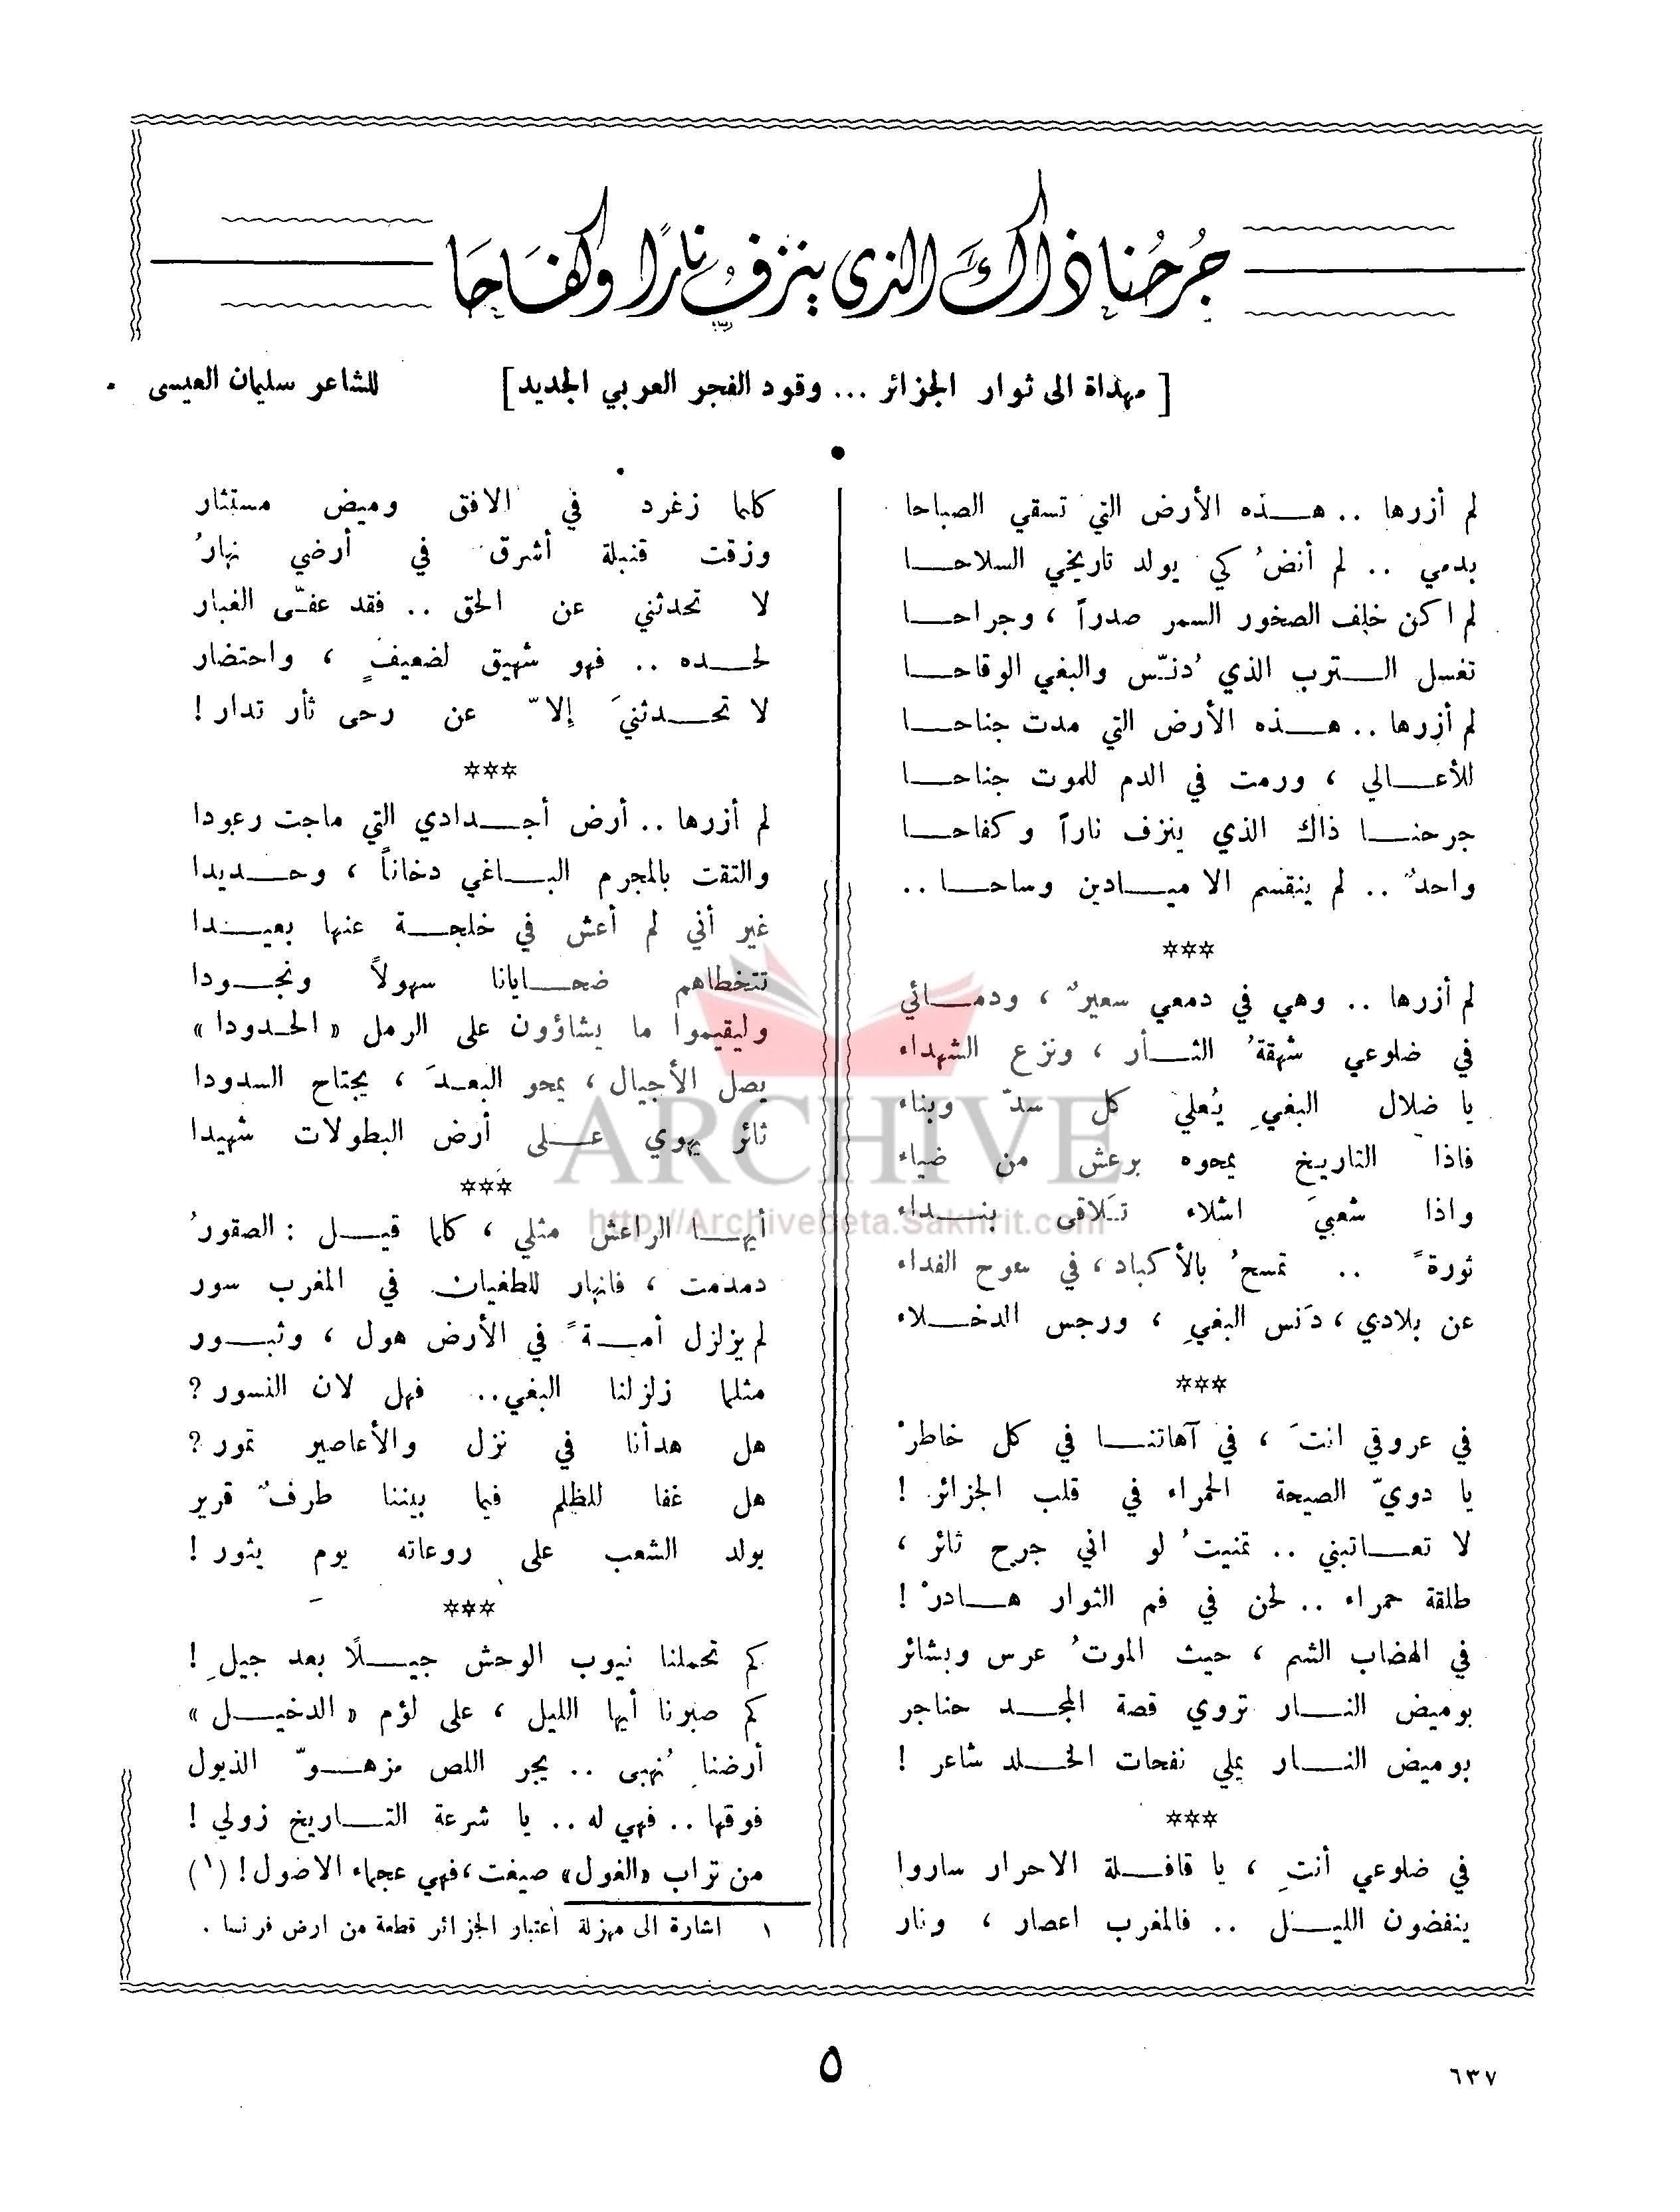 جُرحُنا ذاكَ الذي ينزفُ نارًا وكفَاحَا
[ مهداة الى ثوار الجزائر ... وقود الفجر العربي الجديد ]
للشاعر سليمان العيسى
لم أزرها .. هـذه الأرض التي تسقي الصباحا
بدمي .. لم أنضُ كي يولد تاريخي السلاحـا
لم اكن خلف الصخور السمر صدراً ، وجراحـا
تغسل الـترب الذي دُنـّس والبغي الوقاحـا
لم أزرها .. هـذه الأرض التي مدت جناحـا
للأعـالي ، ورمت في الدم للموت جناحـا
جرحنـا ذاك الذي ينزف ناراً وكفاحـا
واحدٌ .. لم ينقسم الا ميـادين وساحـا ..
***
لم أزرها .. وهي في دمعي سعيرٌ ، ودمـائي
في ضلوعي شهقةُ الثـأر ، ونزع الشهداء
يا ضلال البغيِ يُعلي كل سدّ وبناء
فاذا التاريخ يمحوه برعش من ضياء
واذا شعبيَ اشلاء تـَلاقى بنـداء
ثورةً .. تمسحُ بالأكباد، في سوح الفداء
عن بلادي ، دَنس البغيِ ، ورجس الدخـلاء
***
في عروقي انتَ ، في آهاتنـا في كل خاطرْ
يا دويّ الصيحة الحمراء في قلب الجزائر !
لا تعـاتبني .. تمنيتُ لو اني جرح ثائر ،
طلقة حمراء .. لحن في فم الثوار هـادرْ !
في الهضاب الشم ، حيث الموتُ عرس وبشائر
بوميض النـار تروي قصة المجـد حناجر
بوميض النـار يملي نفحات الخـلد شاعر !
***
في ضلوعي أنتِ ، يا قافـلة الاحرار ساروا
ينفضون الليـل .. فالمغرب اعصار ، ونار
كلما زغرد في الافق وميض مستثار
وزقت قنبلة أشرق في أرضي نهارُ
لا تحدثني عن الحق .. فقد عفّى الغبار
لحـده .. فهو شهيق لضعيفٍ ، واحتضار
لا تحـدثنيَ إلاّ عن رحى ثأر تدار !
***
لم أزرها .. أرض أجـدادي التي ماجت رعودا
والتقت بالمجرم البـاغي دخاناً ، وحـديدا
غير أني لم أعش في خلجـة عنها بعيـدا
تتخطاهم ضحـايانا سهولاً ونجـودا
وليقيموا ما يشاؤون على الرمل «الحـدودا»
يصل الأجيال ، يمحو البعـدَ ، يجتاح السدودا
ثائر يهوي عـلى أرض البطولات شهيدا
***
أيهـا الراعش مثلي ، كلما قيـل : الصقورُ
دمدمت ، فانهار للطغيان في المغرب سور
لم يزلزل أمـةً في الأرض هول ، وثبـور
مثلما زلزلنا البغي.. فهل لان النسور ؟
هل هدأنا في نزل والأعاصير تمور ؟
هل غفا للظلم فيما بيننا طرفٌ قرير
يولد الشعب على روعاته يوم يثور !
***
كم تحملنا نيوب الوحش جيـلاً بعد جيلِ !
كم صبرنا أيها الليل ، على لؤم «الدخيـل»
أرضنا نُهبى .. يجر اللص مزهـوّ الذيول
فوقها .. فهي له .. يا شرعة التـاريخ زولي !
من تراب «الغول» صيغت ، فهي عجماء الاصول! (١)
١ اشارة الى مهزلة اعتبار الجزائر قطعة من ارض فرنسا .
ARCHIVE
http://Archivebeta.Sakhrit.com
٥
٦٣٧